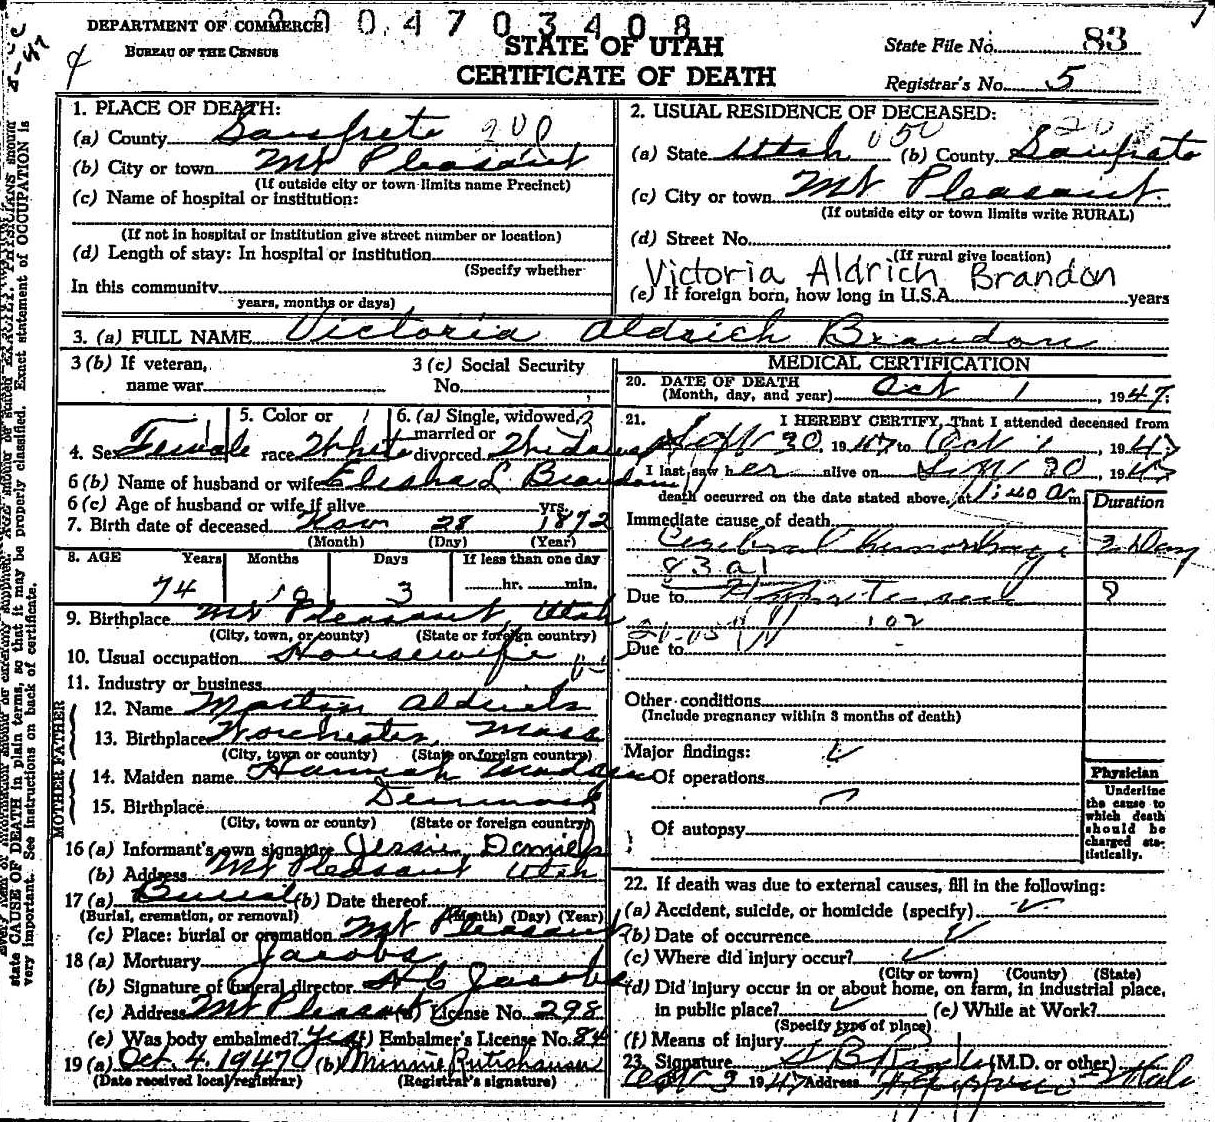 DEPARTMENT OF COMMERCE
BUREAU OF THE CENSUS
04703408
STATE OF UTAH
CERTIFICATE OF DEATH
State File No. 83
Registrar's No. 5
1. PLACE OF DEATH:
(a) County Sanpete 900
(b) City or town Mt Pleasant
(If outside city or town limits name Precinct)
(c) Name of hospital or institution:
(If not in hospital or institution give street number or location)
(d) Length of stay: In hospital or institution
(Specify whether
In this community
years, months or days)
2. USUAL RESIDENCE OF DECEASED:
(a) State Utah 050 (b) County Sanpete 20
(c) City or town Mt Pleasant.
(If outside city or town limits write RURAL)
(d) Street No.
(If rural give location)
Victoria Aldrich Brandon
(e) If foreign born, how long in U.S.A. years
3. (a) FULL NAME Victoria Aldrich Brandon
3 (b) If veteran, name war
3 (c) Social Security No.
4. Sex Female
5. Color or race White
6. (a) Single, widowed, married or divorced Widow
6 (b) Name of husband or wife Elisha L Brandon
6 (c) Age of husband or wife if alive yrs.
7. Birth date of deceased Nov 28 1872
(Month) (Day) (Year)
8. AGE Years Months Days If less than one day
74 10 3 hr. min.
9. Birthplace Mt Pleasant, Utah
(City, town, or county) (State or foreign country)
10. Usual occupation Housewife
11. Industry or business
FATHER
12. Name Martin Aldrich
13. Birthplace Worchester, Mass
(City, town or county) (State or foreign country)
MOTHER
14. Maiden name Hannah Madsen
15. Birthplace Denmark
(City, town or county) (State or foreign country)
16 (a) Informant's own signature Jessie Daniels
(b) Address Mt Pleasant Utah
17 (a) Burial (b) Date thereof
(Burial, cremation, or removal) (Month) (Day) (Year)
(c) Place: burial or cremation Mt Pleasant
18 (a) Mortuary Jacobs
(b) Signature of funeral director H C Jacobs
(c) Address Mt Pleasant (d) License No. 298
(e) Was body embalmed? Yes (f) Embalmer's License No. 84
19 (a) Oct. 4, 1947 (b) Minnie Rutishauser
(Date received local registrar) (Registrar's signature)
MEDICAL CERTIFICATION
20. DATE OF DEATH
(Month, day, and year) Oct 1, 1947.
21. I HEREBY CERTIFY, That I attended deceased from
Sept 30, 1947, to Oct 1, 1947
I last saw her alive on Sept 30, 1947
death occurred on the date stated above, at 1:40 a m.
Duration
Immediate cause of death
Cerebral hemorrhage 2 Day
83a1
Due to Hypertension ?
102
Due to
Other conditions
(Include pregnancy within 3 months of death)
Major findings:
Of operations
Of autopsy
Physician
Underline the cause to which death should be charged statistically.
22. If death was due to external causes, fill in the following:
(a) Accident, suicide, or homicide (specify)
(b) Date of occurrence
(c) Where did injury occur?
(City or town) (County) (State)
(d) Did injury occur in or about home, on farm, in industrial place,
in public place? (e) While at Work?
(Specify type of place)
(f) Means of injury
23. Signature (M.D. or other)
1947 Address
state CAUSE OF DEATH in plain terms, so that it may be properly classified. Exact statement of OCCUPATION is
very important. See instructions on back of certificate.